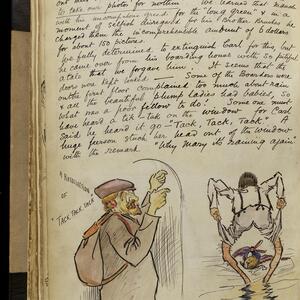 to take our photos for nothin
with his unscrupulous greed for the "long Green" & in a
moment of selfish disregard for his brother Brushes he
charges them the incomprehensible amount of 6 dollars
for about 150 pictures.
We fully determined to extinguish Carl for this, but
he came over from his boarding house with so pitiful
a tale that we forgave him. It seems that the
doors were kept locked. Some of the Boarders were
on the first floor complained too much about rain
& all the beautiful plump ladies had babies, so
what was a poor fellow to do! Some one must
have heard a tik-tak on the window for Carl
said he heard it go—Tack, Tack, Tack." A
huge person stuck her head out of the window
with the remark "Why Mary its raining again"
A REPRODUCTION
OF
"TACK, TACK, TACK"